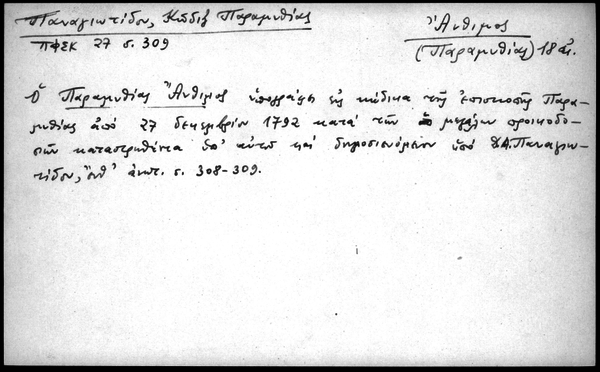 Παναγιωτίδου, Κῶδιξ Παραμυθίας
ΠΦΣΚ 27 σ. 309
Ἄνθιμος
(Παραμυθίας) 18 αἰ.
Ὁ Παραμυθίας Ἄνθιμος ὑπογράφει εἰς κώδικα τῆς ἐπισκοπῆς Παρα-
μυθίας ἀπό 27 δεκεμβρίου 1792 κατά τῶν μεγάλων προικοδο-
σιῶν καταστρωθέντα ὑπ' αὐτοῦ καί δημοσιευόμενον ὑπό Α. Παναγιω-
τίδου, ἔνθ' ἀνωτ. σ. 308-309.